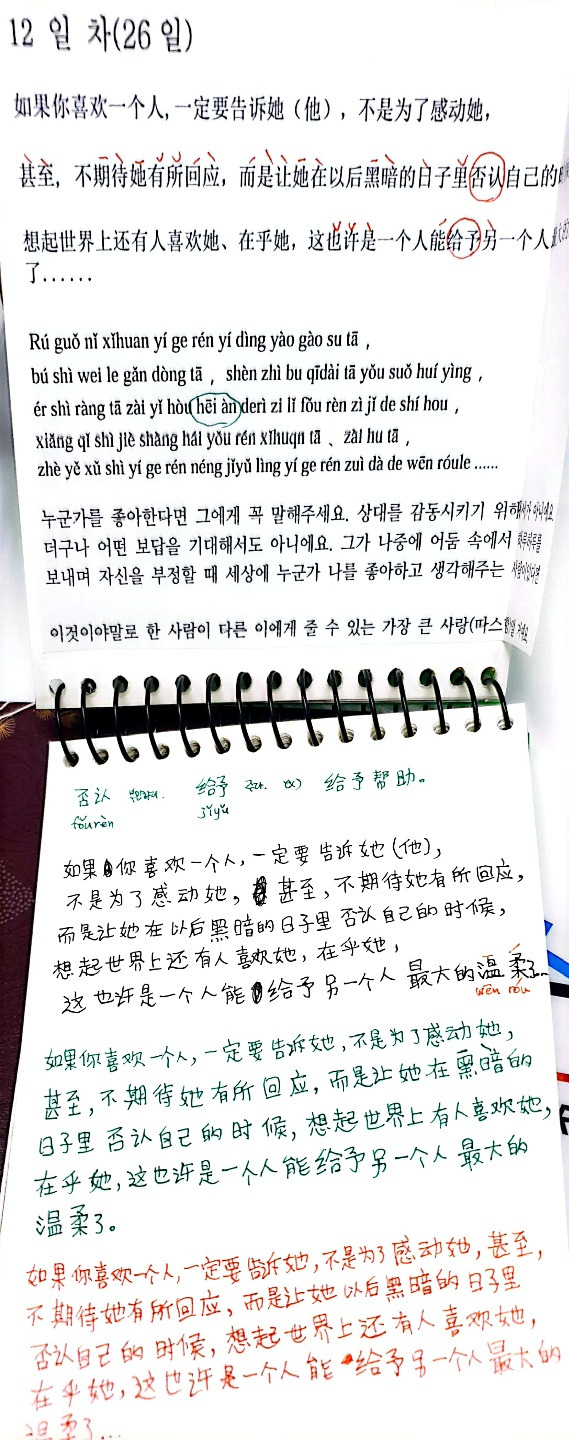 12 일 차(26일)
如果你喜欢一个人,一定要告诉她（他），不是为了感动她，
甚至，不期待她有所回应，而是让她在以后黑暗的日子里否认自己的
想起世界上还有人喜欢她、在乎她，这也许是一个人能给予另一个人
了……
Rú guǒ nǐ xǐhuan yí ge rén yí dìng yào gào su tā ,
bú shì wei le gǎn dòng tā , shèn zhì bu qīdài tā yǒu suǒ huí yìng ,
ér shì ràng tā zài yǐ hòu hēi àn derì zi lǐ fǒu rèn zì jǐ de shí hou ,
xiǎng qǐ shì jiè shàng hái yǒu rén xǐhuqn tā 、zài hu tā ,
zhè yě xǔ shì yí ge rén néng jǐyǔ lìng yí ge rén zuì dà de wēn róule ......
누군가를 좋아한다면 그에게 꼭 말해주세요. 상대를 감동시키기 위해서가 아니에요.
더구나 어떤 보답을 기대해서도 아니에요. 그가 나중에 어둠 속에서 하루하루를
보내며 자신을 부정할 때 세상에 누군가 나를 좋아하고 생각해주는 사람이있다면
이것이야말로 한 사람이 다른 이에게 줄 수 있는 가장 큰 사랑(따스함)일 거예요
否认 给予 주다. 给予帮助。
fǒurèn jǐyǔ
如果你喜欢一个人,一定要告诉她(他),
不是为了感动她, 甚至,不期待她有所回应,
而是让她在以后黑暗的日子里否认自己的时候,
想起世界上还有人喜欢她,在乎她,
这也许是一个人能给予另一个人最大的温柔了...
wēn róu
如果你喜欢一个人,一定要告诉她,不是为了感动她,
甚至,不期待她有所回应,而是让她在黑暗的
日子里否认自己的时候,想起世界上有人喜欢她,
在乎她,这也许是一个人能给予另一个人最大的
温柔了。
如果你喜欢一个人,一定要告诉她,不是为了感动她,甚至,
不期待她有所回应,而是让她以后黑暗的日子里
否认自己的时候,想起世界上还有人喜欢她,
在乎她,这也许是一个人能给予另一个人最大的
温柔了...